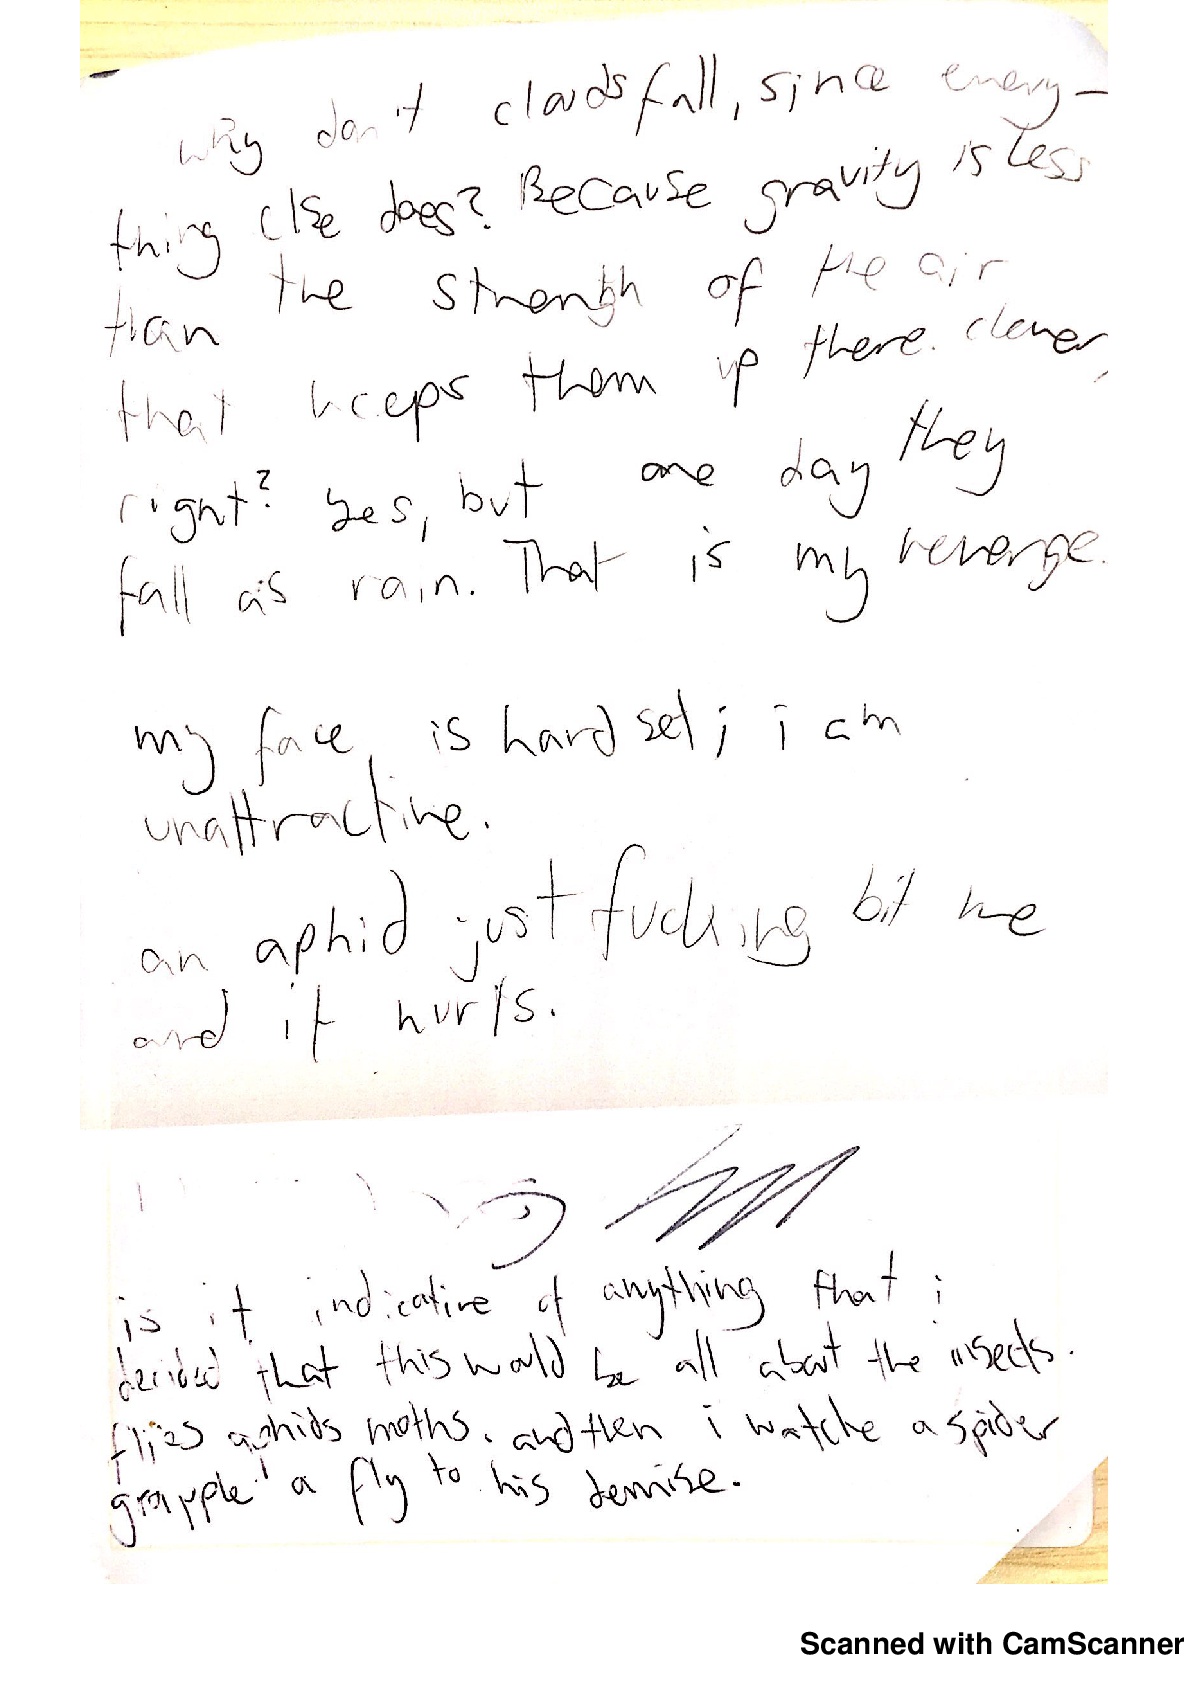 why don't clouds fall, since every-
thing else does? Because gravity is less
than the strength of the air
that keeps them up there. clever,
right? yes, but one day they
fall as rain. That is my revenge.
my face is hard set; i am
unattractive.
an aphid just fucking bit me
and it hurts.
is it indicative of anything that i
decided that this would be all about the insects.
flies aphids moths. and then i watche a spider
grapple a fly to his demise.
Scanned with CamScanner